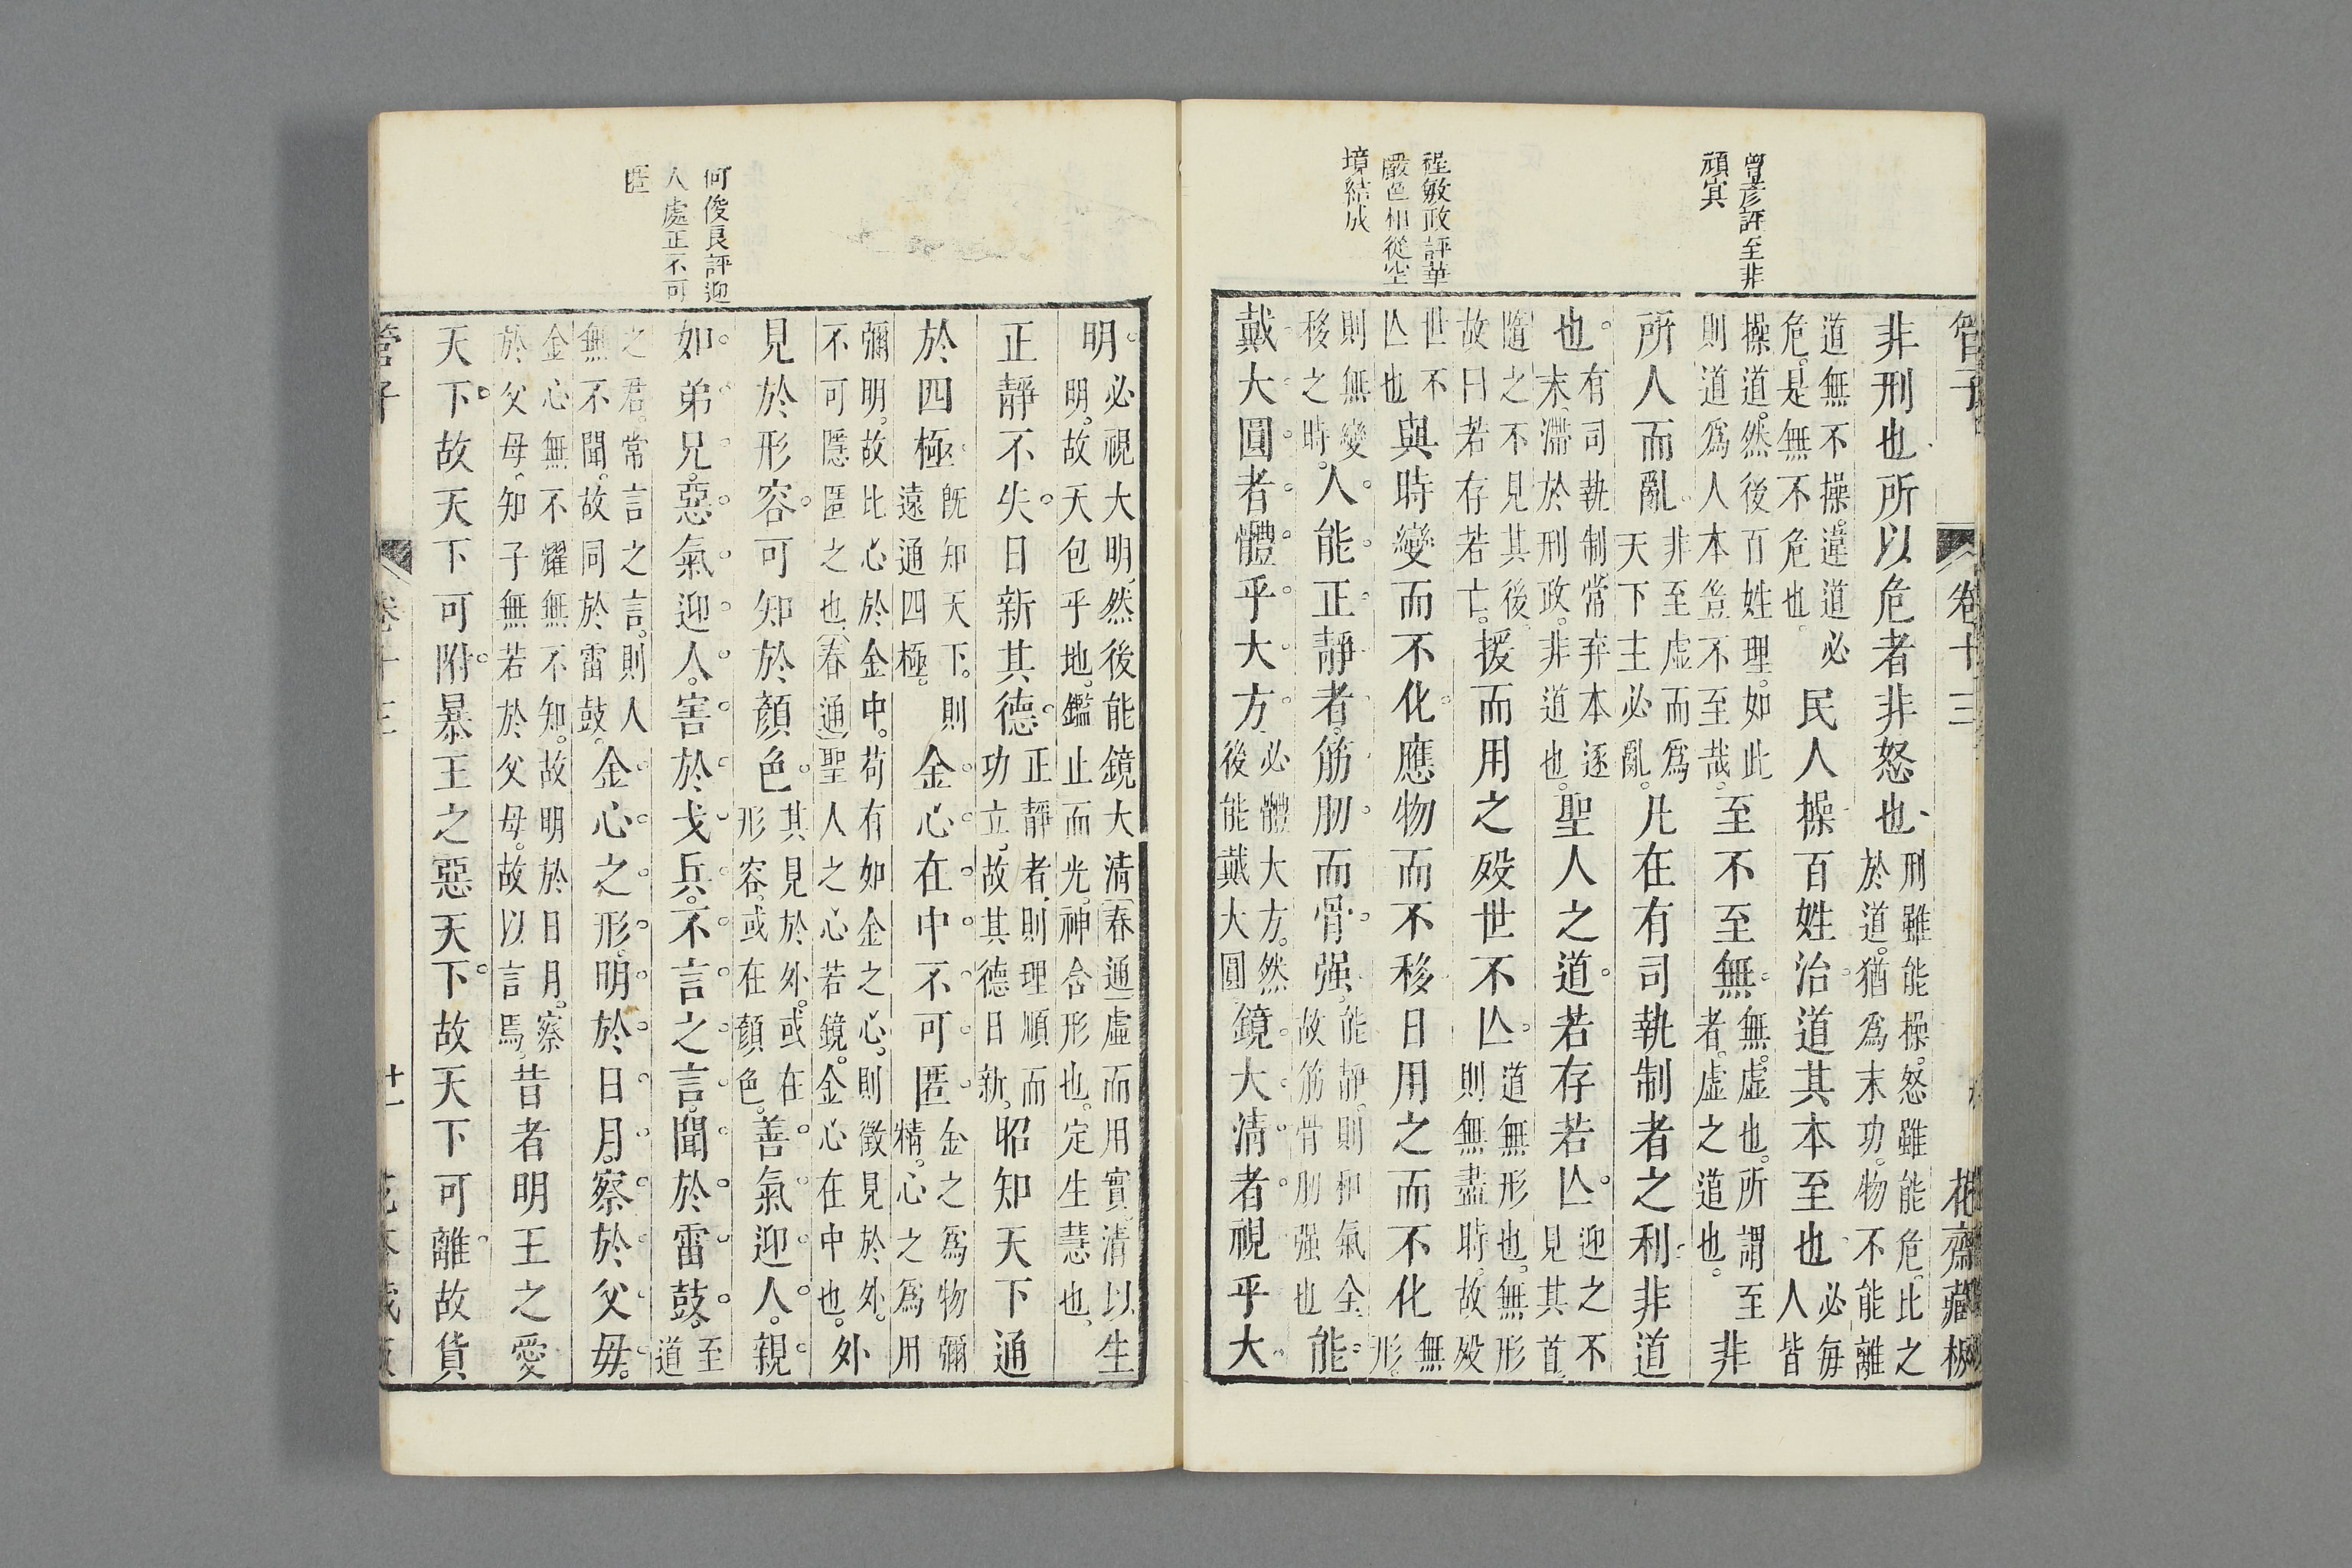 管子　卷十三　花齋藏板
曾彥評至非
頑冥
程敏政評華
嚴色相從空
境結成
非刑也所以危者非怒也
刑雖能操怒雖能危比之
於道猶爲末功物不能離
道無不操違道必
危是無不危也
民人操百姓治道其本至也
必每
人皆
操道然後百姓理如此
則道爲人本豈不至哉
至不至無
無虛也所謂至
者虛之道也
非
所人而亂
非至虛而爲
天下主必亂
凡在有司執制者之利非道
也
有司執制當弃本逐
末滯於刑政非道也
聖人之道若存若亾
迎之不
見其首
隨之不見其後
故曰若存若亡
援而用之歿世不亾
道無形也無形
則無盡時故歿
世不
亾也
與時變而不化應物而不移日用之而不化
無
形
則無變
移之時
人能正靜者筋肕而骨强
能靜則和氣全
故筋骨肕强也
能
戴大圓者體乎大方
必體大方然
後能戴大圓
鏡大清者視乎大
何俊良評迎
人處正不可
匿
明
必視大明然後能鏡大清(春通)虛而用實清以生
明故天包乎地鑑止而光神合形也定生慧也
正靜不失日新其德
正靜者則理順而
功立故其德日新
昭知天下通
於四極
旣知天下則
遠通四極
金心在中不可匿
金之爲物彌
精心之爲用
彌明故比心於金中苟有如金之心則徵見於外
不可隱匿之也(春通)聖人之心若鏡金心在中也
外
見於形容可知於顏色
其見於外或在
形容或在顏色
善氣迎人親
如弟兄惡氣迎人害於戈兵不言之言聞於雷鼓
至
道
之君常言之言則人
無不聞故同於雷鼓
金心之形明於日月察於父毋
金心無不耀無不知故明於日月察
於父母知子無若於父母故以言焉
昔者明王之愛
天下故天下可附暴王之惡天下故天下可離故貨
管子　卷十三　十一　花齋藏板